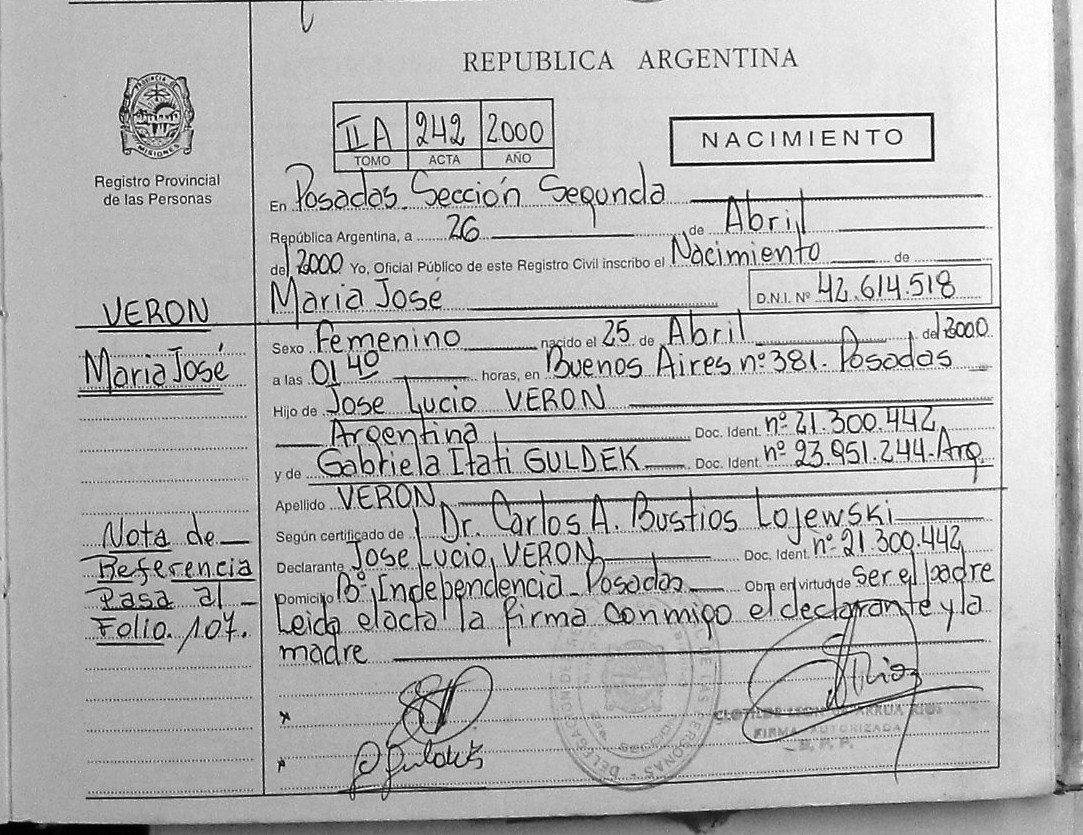 REPUBLICA ARGENTINA
PROVINCIA D
MISIONES
Registro Provincial
de las Personas
II A 242 2000
TOMO ACTA AÑO
NACIMIENTO
En Posadas Sección Segunda
República Argentina, a 26 de Abril
del 2000 Yo, Oficial Público de este Registro Civil inscribo el Nacimiento de
Maria José D.N.I. Nº 42.614.518
VERON
Maria José
Sexo Femenino nacido el 25 de Abril del 2000
a las 01 40 horas, en Buenos Aires nº 381. Posadas
Hijo de Jose Lucio VERON
Argentina Doc. Ident. nº 21.300.442
y de Gabriela Itati GULDEK Doc. Ident. nº 23.951.244-Arg
Apellido VERON
Según certificado de Dr. Carlos A. Bustios Lojewski
Declarante Jose Lucio VERON Doc. Ident. nº 21.300.442
Domicilio Bº Independencia Posadas Obra en virtud de ser el padre
Leida el acta la firma conmigo el declarante y la
madre
Nota de
Referencia
Pasa al
Folio. 107.
DE LAS PERSONAS - DELEGACION DE
SECCION
FIRMA AUTORIZADA